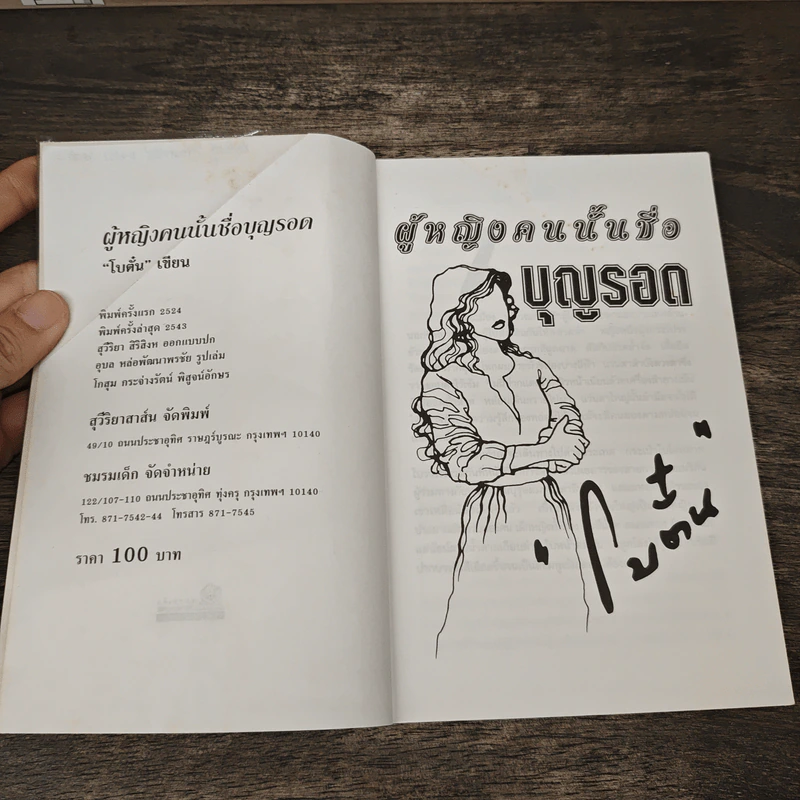 ผู้หญิงคนนั้นชื่อบุญรอด
“โบตั๋น” เขียน
พิมพ์ครั้งแรก 2524
พิมพ์ครั้งล่าสุด 2543
สุวีริยา สิริสิงห ออกแบบปก
อุบล หล่อพัฒนาพรชัย รูปเล่ม
โกสุม กระจ่างรัตน์ พิสูจน์อักษร
สุวีริยาสาส์น จัดพิมพ์
49/10 ถนนประชาอุทิศ ราษฎร์บูรณะ กรุงเทพฯ 10140
ชมรมเด็ก จัดจำหน่าย
122/107-110 ถนนประชาอุทิศ ทุ่งครุ กรุงเทพฯ 10140
โทร. 871-7542-44 โทรสาร 871-7545
ราคา 100 บาท
ผู้หญิงคนนั้นชื่อ
บุญรอด
"โบตั๋น"